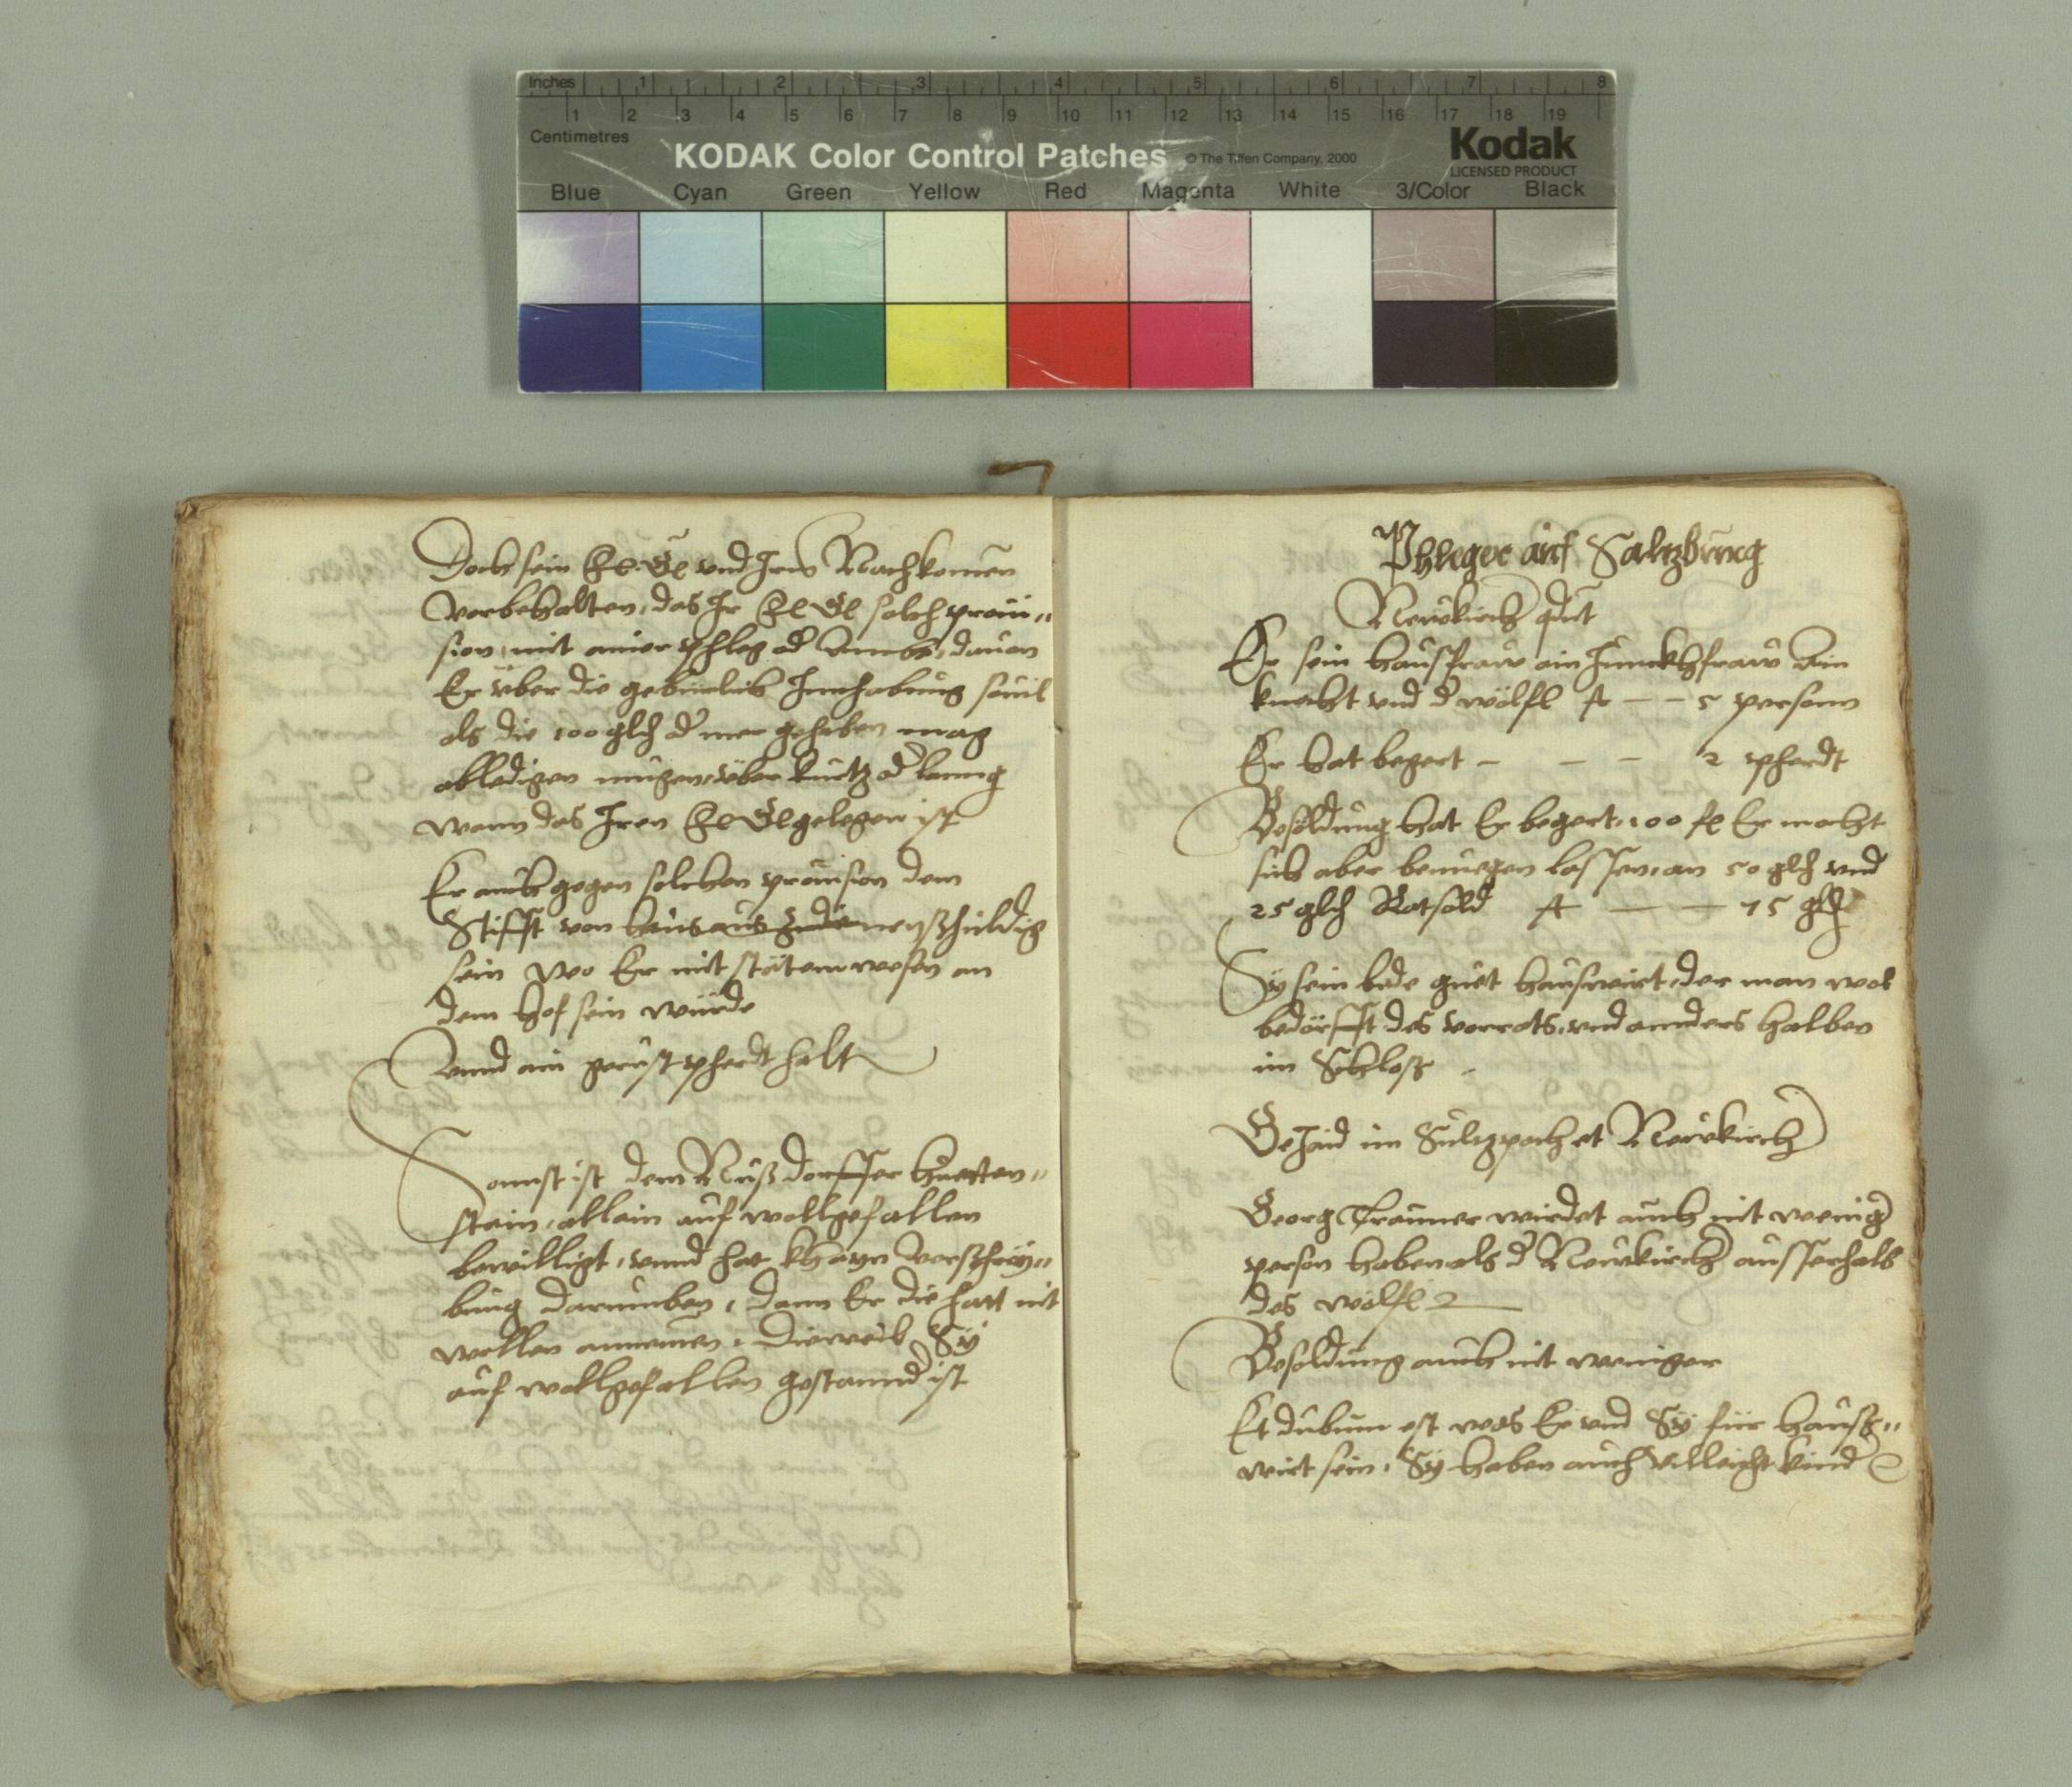 Inches 1 2 3 4 5 6 7 8
1 2 3 4 5 6 7 8 9 10 11 12 13 14 15 16 17 18 19
Centimetres
KODAK Color Control Patches © The Tiffen Company, 2000 Kodak
LICENSED PRODUCT
Blue Cyan Green Yellow Red Magenta White 3/Color Black
Doch sein vnd Irn Nachkomen
vorbehalten, das Ir solch proui„
sion, mit ainer phleg od Ambt, dauon
Er vber die geburlich Innhabung souil
als die 100 glch od mer gehaben mag
abledigen mugen, vber kurtz od lanng
wann das Iren gelegen ist
Er auch gegen solchen prouision dem
Stifft von haus aus zudienen schuldig
sein wo Er mit stätem wesen an
dem hof sein würde
Vnnd ain gerust phardt halt
Sonnst ist dem Nußdorffer huetten„
stain, allain auf wollgefallen
bewilligt, vnnd hat khayn verschrey„
bung darumben, dann Er die hatt nit
wellen annemen, dieweil Sy
auf wollgefallen gestannd ist
Phleger auf Saltzburg
Newkirch
Er sein hausfraw ain Junckhfraw Ain
knecht vnd d wölfl — — 5 person
Er hat begert — — — 2 phardt
Besoldung hat Er begert, 100 fl Er mocht
sich aber benuegen lassen, an 50 glch vnd
25 glch Ratsold — — 75 glch
Sy sein bede guet hauswirt, der man wol
bedörfft des vorrats, vnd annders halben
im Schloss
GeJaid im Sultzpach et Newkirch
Georg Trauner wirdet auch nit wenig
person haben als d Newkirch ausserhalb
des wölfl
Besoldung auch nit weniger
Et dubium est was Er vnd Sy für hauß„
wirt sein, Sy haben auch villeicht kind